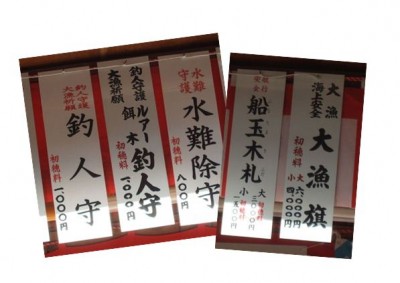 水難
守護
水難除守
初穂料
八〇〇円
釣人守護
大漁祈願
ルアー
餌木
釣人守
初穂料
一、〇〇〇円
釣人守護
大漁祈願
釣人守
初穂料
一、〇〇〇円
大漁
海上安全
大漁旗
初穂料
大 六、〇〇〇円
小 四、〇〇〇円
船玉木札
大 三〇〇〇円
小 一五〇〇円
初穂料